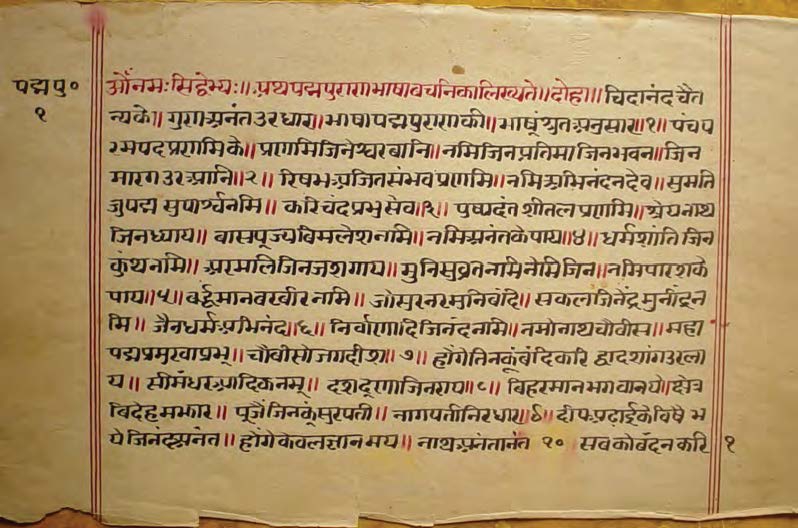 पद्मपु०
१
ओंनमःसिद्धेभ्यः॥अथपद्मपुराणभाषावचनिकालिख्यते॥दोहा॥चिदानंदचैत
न्यके॥गुणअनंतउरधार॥भाषापद्मपुराणकी॥भाषूंश्रुतअनुसार॥१॥पंचप
रमपदप्रणमिके॥प्रणमिजिनेश्वरबानि॥नमिजिनप्रतिमाजिनभवन॥जिन
मारगउरआनि॥२॥रिषभअजितसंभवप्रणमि॥नमिअभिनंदनदेव॥सुमति
जुपद्मसुपार्श्वनमि॥करिचंदप्रभुसेव॥३॥पुष्पदंतशीतलप्रणमि॥श्रेयनाथ
जिनध्याय॥बासपूज्यविमलेशनमि॥नमिअनंतकेपाय॥४॥धर्मशांतिजिन
कुंथनमि॥अरमलिजिनजशगाय॥मुनिसुव्रतनमिनेमिजिन॥नमिपारशके
पाय॥५॥वर्द्धमानबरवीरनमि॥जोसुरनरमुनिबंदि॥सकलजिनेंद्रमुनींद्रन
मि॥जैनधर्मअभिनंद॥६॥निर्वाणादिजिनंदनमि॥नमोनाथचौवीस॥महा
पद्मप्रमुखाप्रभू॥चौबीसोजगदीश॥७॥होंगेतिनकूंबंदिकरिद्वादशांगउरला
य॥सीमंधरआदिकनमू॥दशदूणाजिनराय॥८॥बिहरमानभगवानये॥क्षेत्र
बिदेहमझार॥पूजैंजिनकूंसुरपती॥नागपतीनिरधार॥९॥दीपअढ़ाईकेविषैभ
येजिनंदअनंत॥होंगेकेवलज्ञानमय॥नाथअनंतानंत १० सवकोबंदनकरि
१